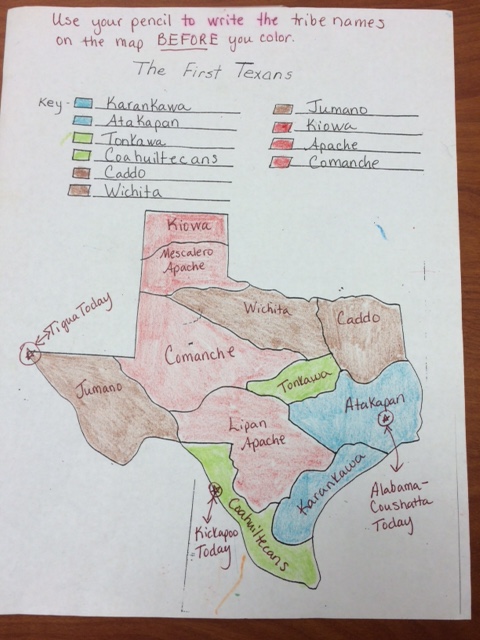 Use your pencil to write the tribe names
on the map BEFORE you color.
The First Texans
Key -
Karankawa
Atakapan
Tonkawa
Coahuiltecans
Caddo
Wichita
Jumano
Kiowa
Apache
Comanche
Kiowa
Mescalero
Apache
Wichita
Caddo
Tigua Today
Comanche
Jumano
Tonkawa
Atakapan
Lipan
Apache
Karankawa
Alabama-
Coushatta
Today
Coahuiltecans
Kickapoo
Today